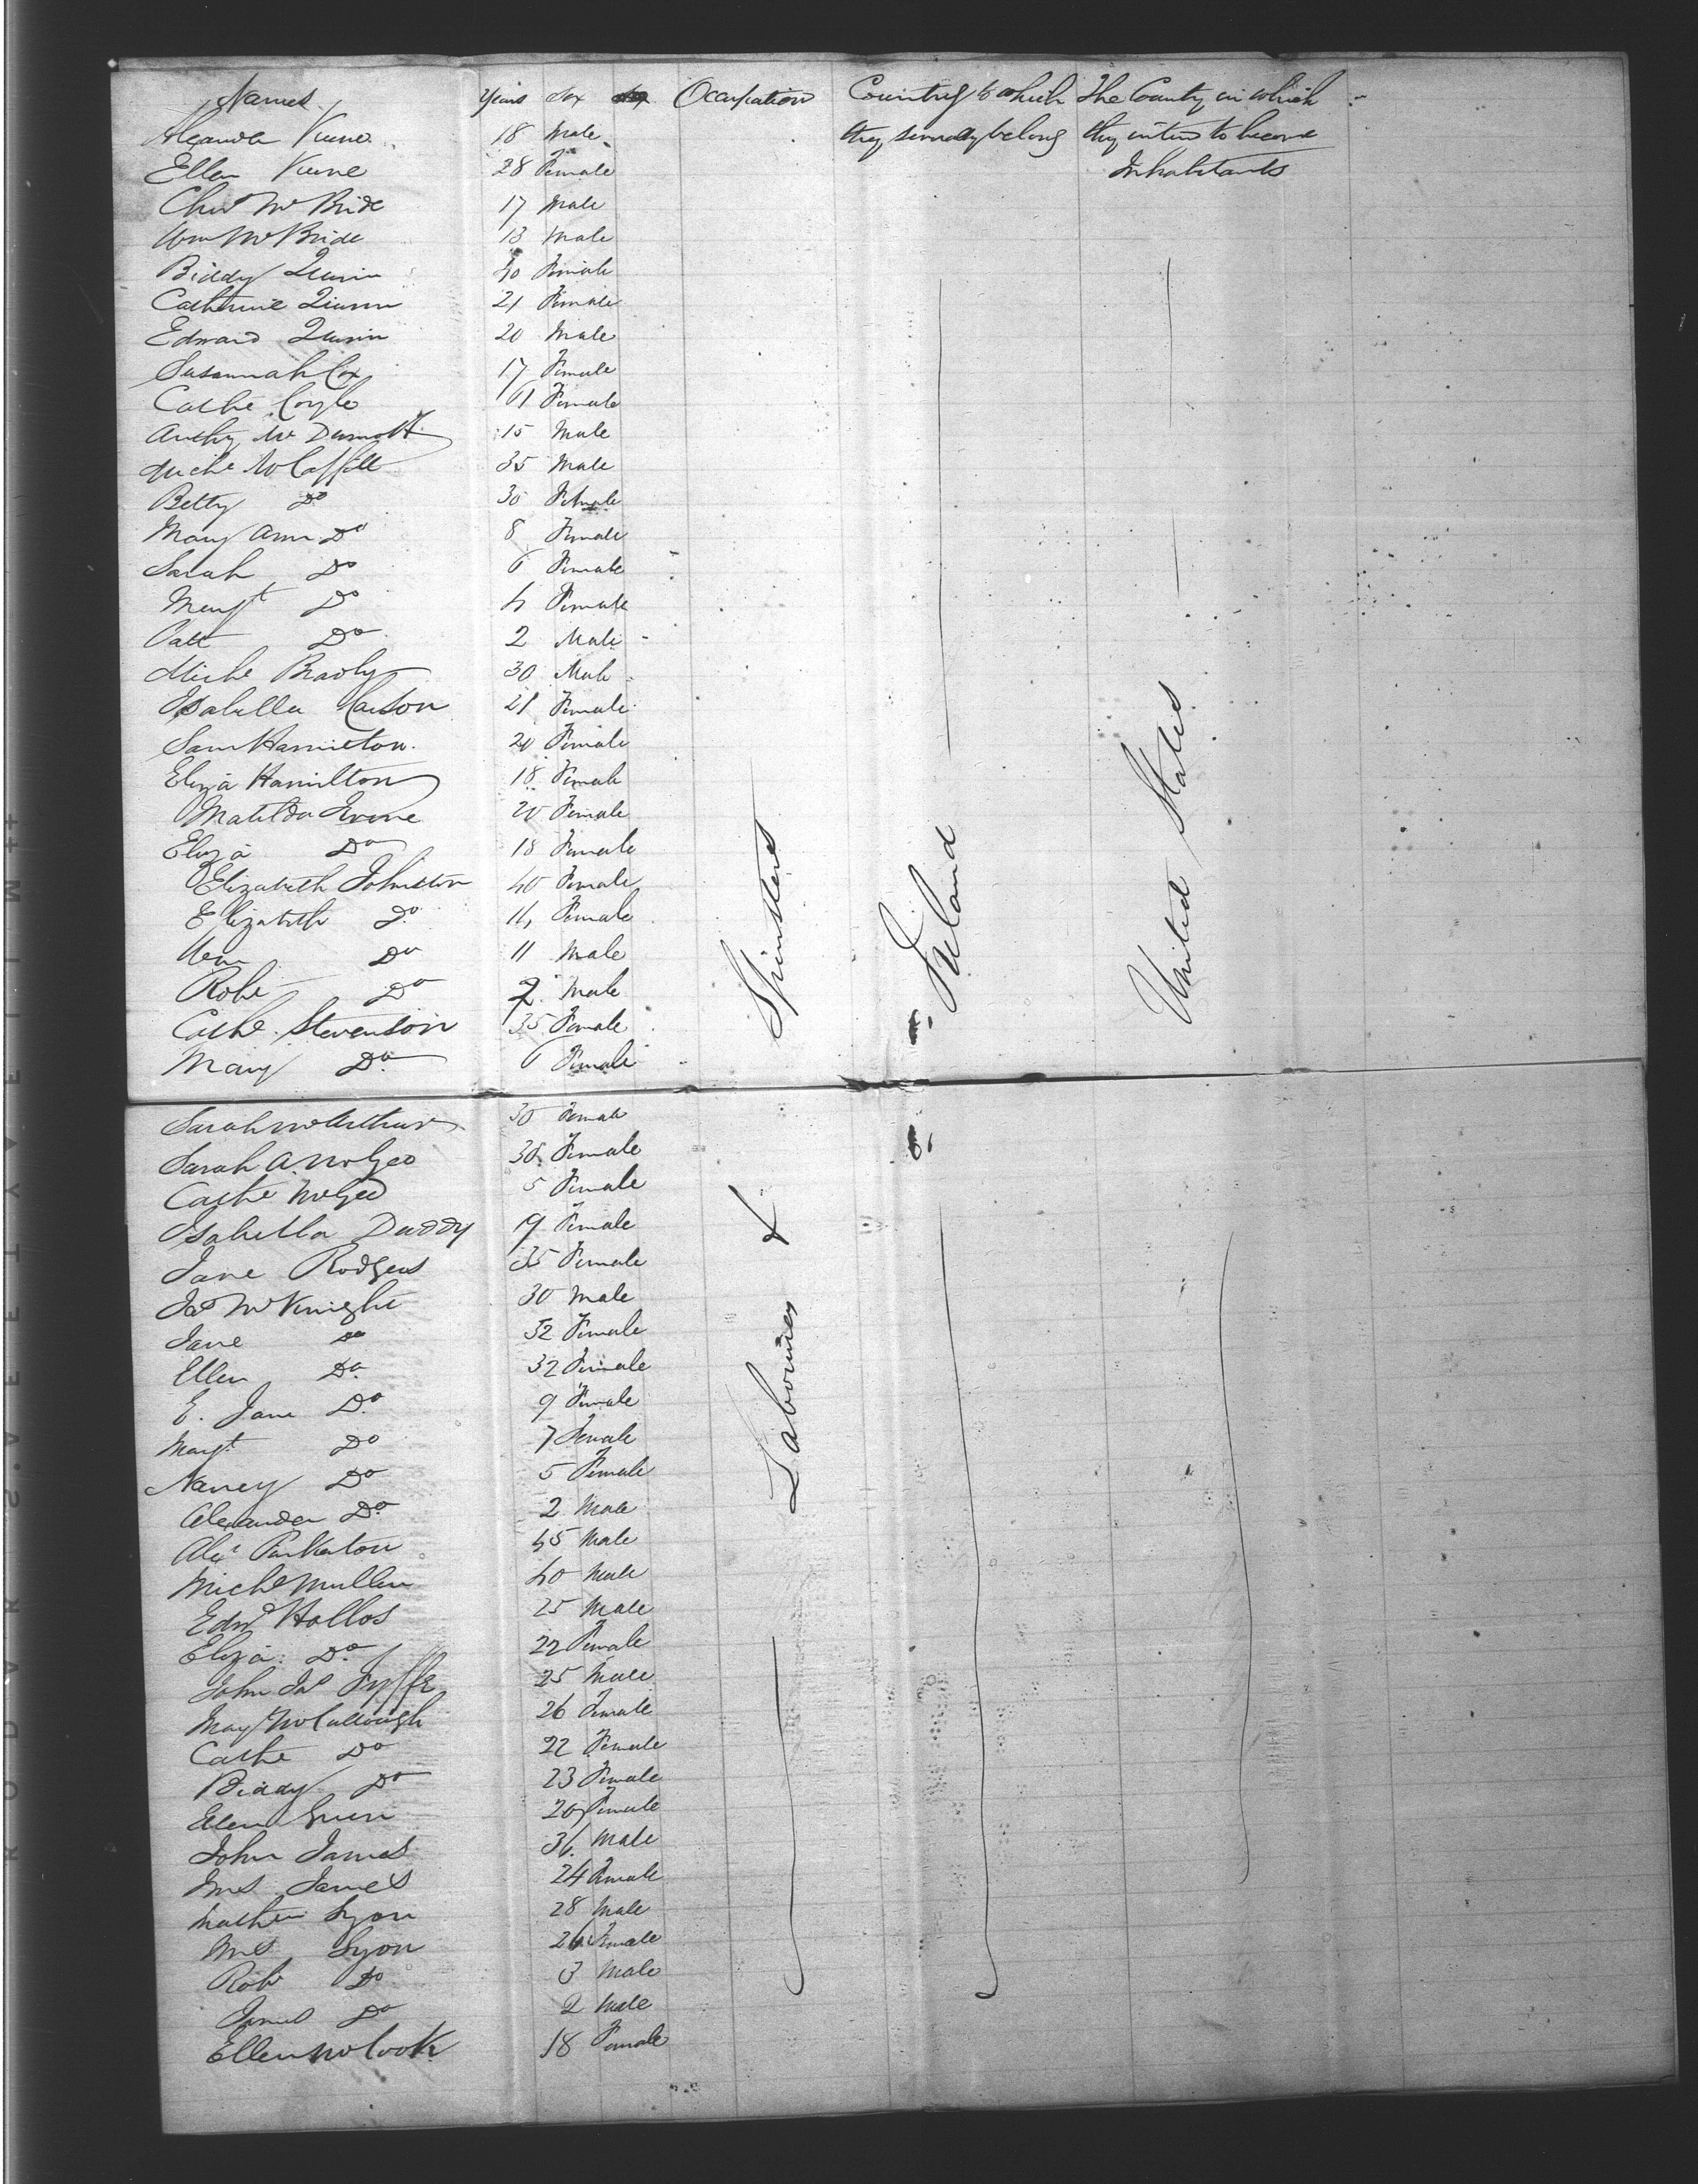 Names Years Sex Occupation Country to which The County in which
they severally belong they intend to become
Inhabitants
18 Male
Ellen 28 Female
Chas McBride 17 Male
Wm McBride 13 Male
Biddy Quinn 30 Female
Catherine Quinn 21 Female
Edward Quinn 20 Male
Susannah Cox 17 Female
Cathe Coyle Female
Anthy McDermott 15 Male
Miche McCaffill 35 Male
Betty Do 30 Female
Mary Ann Do 8 Female
Sarah Do 6 Female
Margt Do 4 Female
Patt Do 2 Male
Miche Bradly 30 Male
Isabella Carson 21 Female
Sam Hamilton 20 Female
Eliza Hamilton 18 Female
Matilda Irvine 20 Female
Eliza Do 18 Female
Elizabeth Johnston 40 Female
Elizabeth Do 14 Female
Wm Do 11 Male
Robt Do 2 Male
Cathe Stevenson 35 Female
Mary Do 6 Female
Sarah McArthur 30 Female
Sarah A. McGee 38 Female
Cathe McGee 5 Female
Isabella Duddy 19 Female
Jane Rodgers 35 Female
Jas McKnight 30 Male
Jane Do 32 Female
Ellen Do 32 Female
E. Jane Do 9 Female
Margt Do 7 Female
Nancy Do 5 Female
Alexander Do 2 Male
Alexr Pinkerton 45 Male
Miche Mullen 40 Male
Edwd Hollos 25 Male
Eliza Do 22 Female
John Jas Fyffe 25 Male
Mary McCullough 26 Female
Cathe Do 22 Female
Biddy Do 23 Female
Ellen Green 20 Female
John James 36 Male
Mrs James 24 Female
Mathew Lyon 28 Male
Mrs Lyon 26 Female
Robt Do 3 Male
James Do 2 Male
Ellen McCook 18 Female
Labourers & Spinsters
Ireland
United States